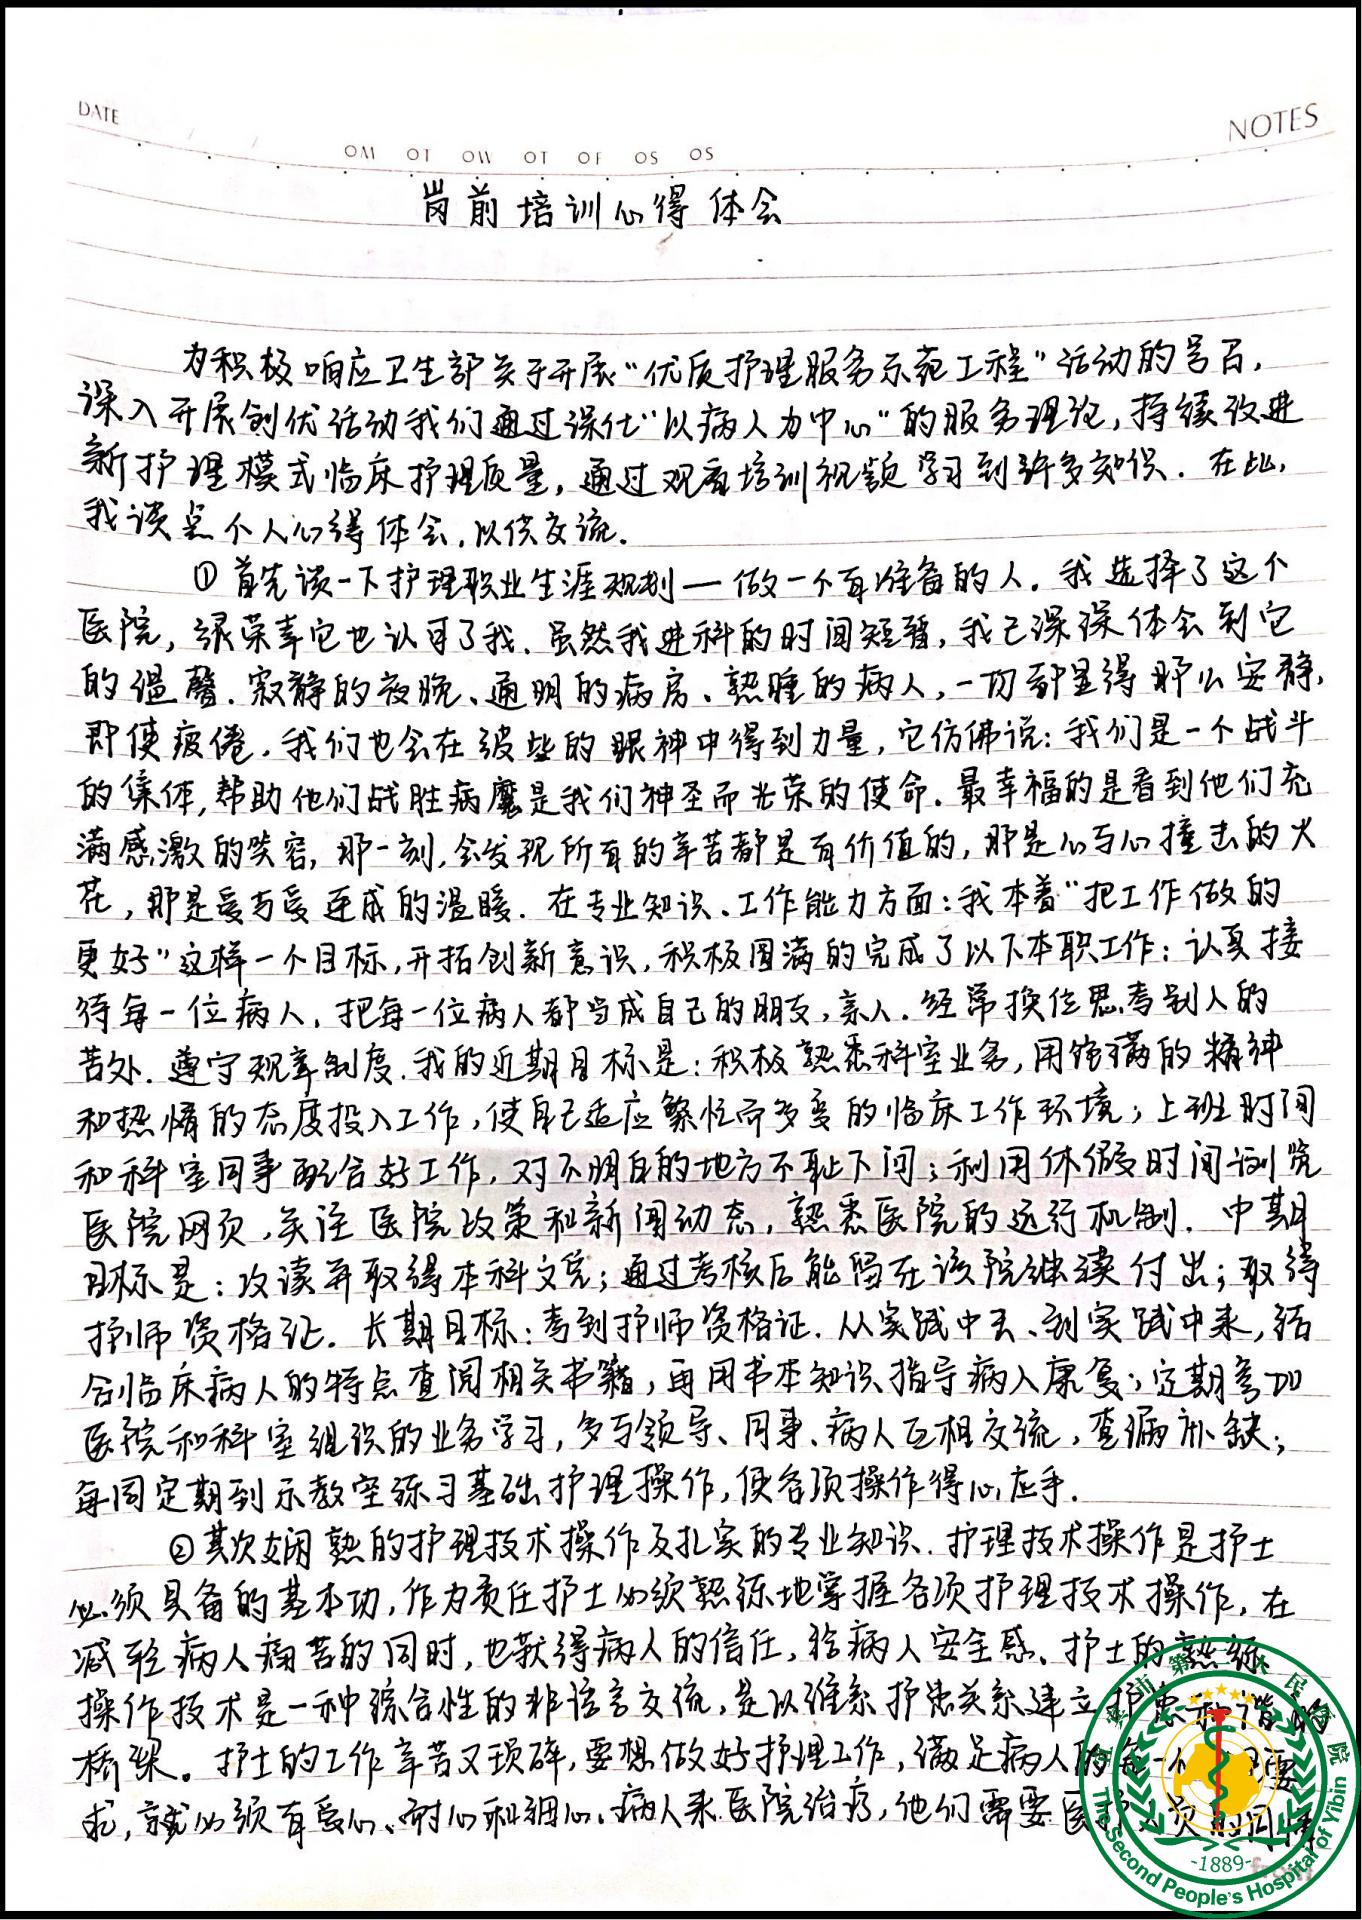 DATE
NOTES
OM OT OW OT OF OS OS
岗前培训心得体会
为积极响应卫生部关于开展“优质护理服务示范工程”活动的号召,
深入开展创优活动我们通过深化“以病人为中心”的服务理论,持续改进
新护理模式临床护理质量,通过观看培训视频学习到许多知识.在此,
我谈点个人心得体会,以供交流.
①首先谈一下护理职业生涯规划—做一个有准备的人.我选择了这个
医院,很荣幸它也认可了我.虽然我进科的时间短暂,我已深深体会到它
的温馨.寂静的夜晚、通明的病房、熟睡的病人,一切都显得那么安静,
即使疲倦.我们也会在彼此的眼神中得到力量,它仿佛说:我们是一个战斗
的集体,帮助他们战胜病魔是我们神圣而光荣的使命.最幸福的是看到他们充
满感激的笑容,那一刻,会发现所有的辛苦都是有价值的,那是心与心撞击的火
花,那是爱与爱连成的温暖.在专业知识、工作能力方面:我本着“把工作做的
更好”这样一个目标,开拓创新意识,积极圆满的完成了以下本职工作:认真接
待每一位病人,把每一位病人都当成自己的朋友,亲人.经常换位思考别人的
苦处.遵守规章制度.我的近期目标是:积极熟悉科室业务,用饱满的精神
和热情的态度投入工作,使自己适应繁忙而多变的临床工作环境;上班时间
和科室同事配合好工作,对不明白的地方不耻下问;利用休假时间浏览
医院网页,关注医院政策和新闻动态,熟悉医院的运行机制.中期
目标是:攻读并取得本科文凭;通过考核后能留在该院继续付出;取得
护师资格证.长期目标:考到护师资格证.从实践中去、到实践中来,结
合临床病人的特点查阅相关书籍,再用书本知识指导病人康复;定期参加
医院和科室组织的业务学习,多与领导、同事、病人互相交流,查漏补缺;
每周定期到示教室练习基础护理操作,使各项操作得心应手.
②其次娴熟的护理技术操作及扎实的专业知识.护理技术操作是护士
必须具备的基本功,作为责任护士必须熟练地掌握各项护理技术操作,在
减轻病人痛苦的同时,也获得病人的信任,给病人安全感、护士的熟练
操作技术是一种综合性的非语言交流,是以维系护患关系建立护患和谐的
桥梁。护士的工作辛苦又琐碎,要想做好护理工作,满足病人的每一个需要
求,就必须有爱心、耐心和细心.病人来医院治疗,他们需要医护人员的同情
宜宾市第二人民医院
The Second People's Hospital of Yibin
-1889-